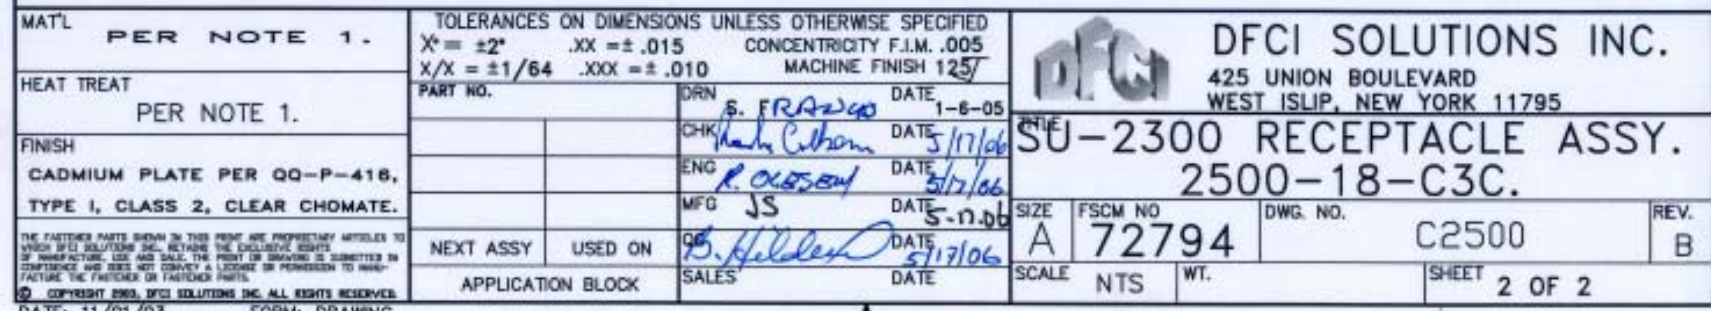 MAT'L
PER NOTE 1.
HEAT TREAT
PER NOTE 1.
FINISH
CADMIUM PLATE PER QQ-P-416,
TYPE I, CLASS 2, CLEAR CHOMATE.
THE FASTENER PARTS SHOWN IN THIS PRINT ARE PROPRIETARY ARTICLES TO
WHICH DFCI SOLUTIONS INC. RETAINS THE EXCLUSIVE RIGHTS
OF MANUFACTURE, USE AND SALE. THE PRINT OR DRAWING IS SUBMITTED IN
CONFIDENCE AND DOES NOT CONVEY A LICENSE OR PERMISSION TO MANU-
FACTURE THE FASTENER OR FASTENER PARTS.
© COPYRIGHT 2003, DFCI SOLUTIONS INC. ALL RIGHTS RESERVED.
DATE: 11/01/03 FORM: DRAWING
TOLERANCES ON DIMENSIONS UNLESS OTHERWISE SPECIFIED
X° = ±2° .XX =± .015 CONCENTRICITY F.I.M. .005
X/X = ±1/64 .XXX =± .010 MACHINE FINISH 125/
PART NO.
NEXT ASSY USED ON
APPLICATION BLOCK
DRN S. FRANCO DATE 1-6-05
CHK DATE 5/17/06
ENG R. OLESEN DATE 5/17/06
MFG JS DATE 5-17-06
B. Hilden DATE 5/17/06
SALES DATE
DFCI
DFCI SOLUTIONS INC.
425 UNION BOULEVARD
WEST ISLIP, NEW YORK 11795
TITLE
SU-2300 RECEPTACLE ASSY.
2500-18-C3C.
SIZE A
FSCM NO 72794
DWG. NO. C2500
REV. B
SCALE NTS
WT.
SHEET 2 OF 2